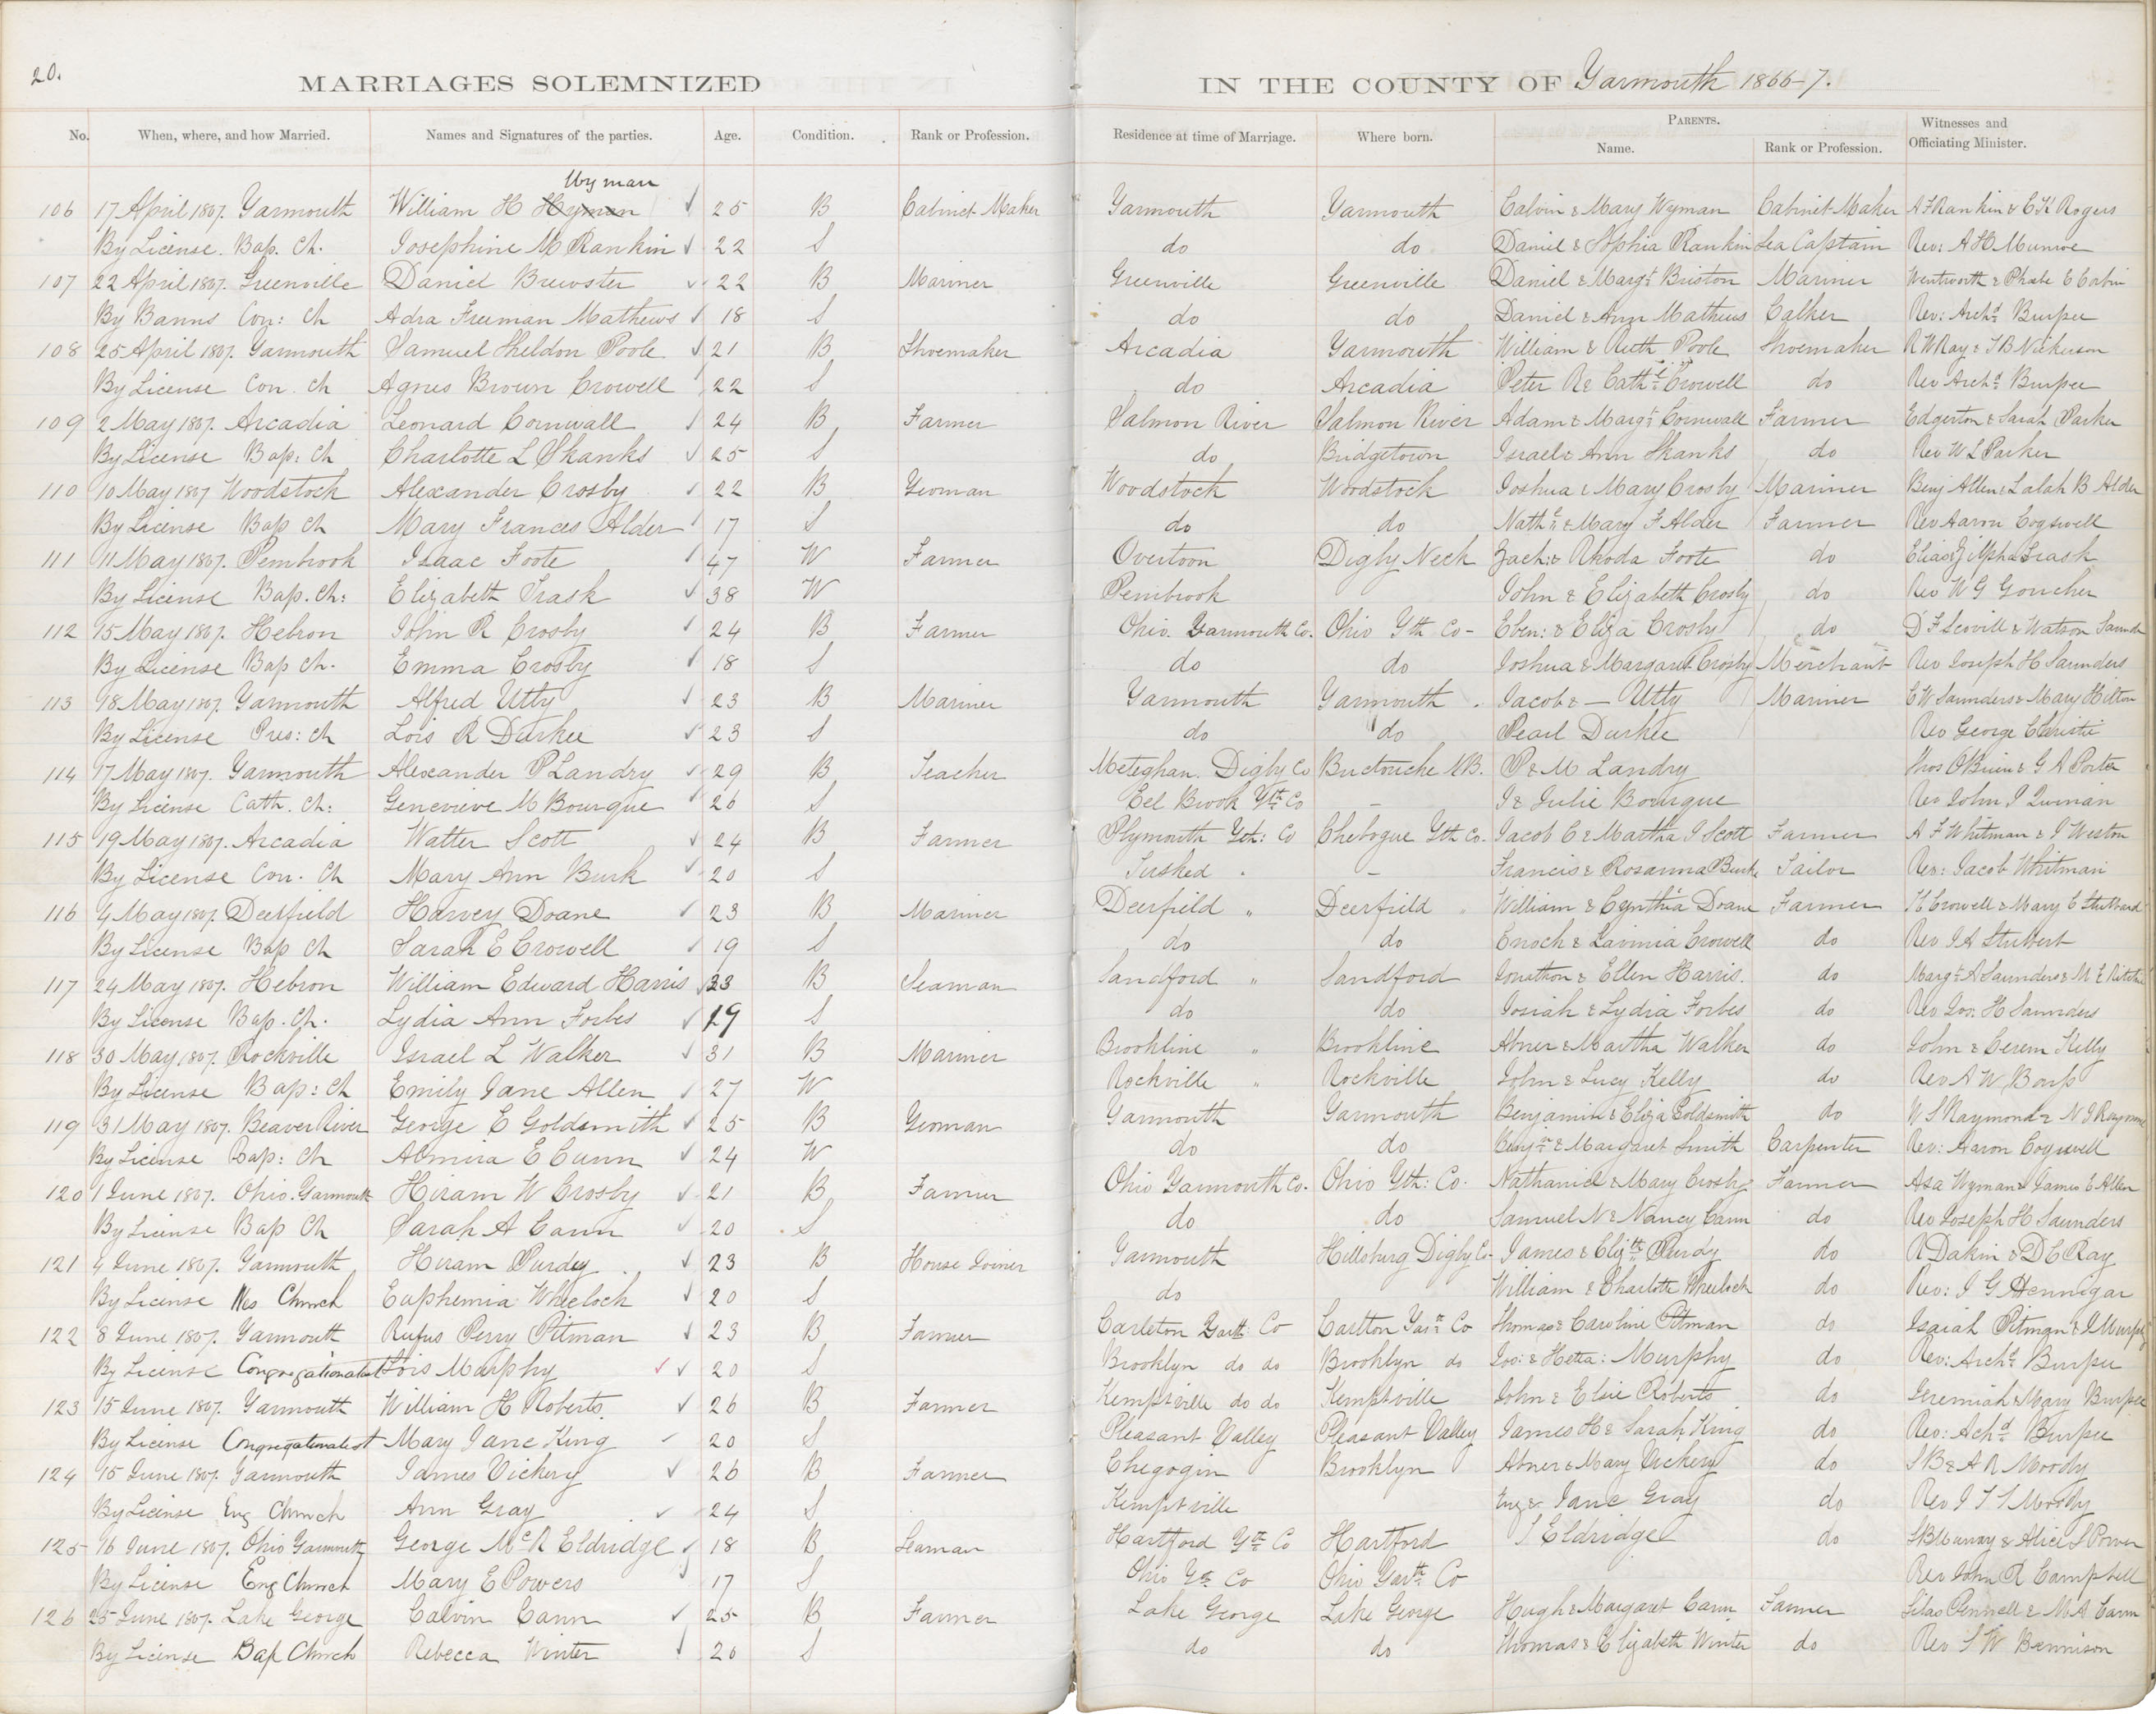 20.
MARRIAGES SOLEMNIZED IN THE COUNTY OF Yarmouth 1866-7.
No. When, where, and how Married. Names and Signatures of the parties. Age. Condition. Rank or Profession. Residence at time of Marriage. Where born. PARENTS. Name. Rank or Profession. Witnesses and Officiating Minister.
Wyman
106 17 April 1867. Yarmouth William H Hyman 25 B Cabinet Maker Yarmouth Yarmouth Calvin & Mary Wyman Cabinet Maker A F Rankin & C K Rogers
By License. Bap. Ch. Josephine M Rankin 22 S do do Daniel & Sophia Rankin Sea Captain Rev: A H Munroe
107 22 April 1867. Greenville Daniel Brewster 22 B Mariner Greenville Greenville Daniel & Margt Mariner Wentworth & Phebe E
By Banns Con: Ch Adra Freeman Mathews 18 S do do Daniel & Ann Mathews Calker Rev: Archd Burpee
108 25 April 1867. Yarmouth Samuel Sheldon Poole 21 B Shoemaker Arcadia Yarmouth William & Ruth Poole Shoemaker R W Ray & S B Nickerson
By License Con. Ch Agnes Brown Crowell 22 S do Arcadia Peter R & Cathe Crowell do Rev Archd Burpee
109 2 May 1867. Arcadia Leonard Cornwall 24 B Farmer Salmon River Salmon River Adam & Margt Cornwall Farmer Edgerton & Sarah Parker
By License Bap: Ch Charlotte L Shanks 25 S do Bridgetown Israel & Ann Shanks do Rev W L Parker
110 10 May 1867 Woodstock Alexander Crosby 22 B Yeoman Woodstock Woodstock Joshua & Mary Crosby Mariner Benj Allen & Lalah B Alder
By License Bap Ch Mary Frances Alder 17 S do do Nathn & Mary F Alder Farmer Rev Aaron Cogswell
111 11 May 1867. Pembrook Isaac Foote 47 W Farmer Overtoon Digby Neck Zach: & Rhoda Foote do Elias & Zilpha Trask
By License Bap. Ch: Elizabeth Trask 38 W Pembrook John & Elizabeth Crosby do Rev W G Goucher
112 15 May 1867. Hebron John R Crosby 24 B Farmer Ohio. Yarmouth Co. Ohio Yth Co- Eben: & Eliza Crosby do D F Scovill & Watson Saunder
By License Bap Ch. Emma Crosby 18 S do do Joshua & Margaret Crosby Merchant Rev Joseph H Saunders
113 18 May 1867. Yarmouth Alfred Utty 23 B Mariner Yarmouth Yarmouth. Jacob & — Utty Mariner E W Saunders & Mary Hilton
By License Pres: Ch Lois R Durkee 23 S do do Pearl Durkee Rev George Christie
114 17 May 1867. Yarmouth Alexander P Landry 29 B Teacher Meteghan. Digby Co Buctouche N.B. P & M Landry Thos O Brien & G A Porter
By License Cath. Ch: Genevieve M Bourque 26 S Eel Brook Yth Co – J & Julie Bourque Rev John J Quinan
115 19 May 1867. Arcadia Walter Scott 24 B Farmer Plymouth Yth: Co Chebogue Yth Co. Jacob C & Martha J Scott Farmer A F Whitman & J Weston
By License Con. Ch Mary Ann Burk 20 S Tusked – Francis & Rosanna Burk Tailor Rev: Jacob Whitman
116 4 May 1867. Deerfield Harvey Doane 23 B Mariner Deerfield " Deerfield William & Cynthia Doane Farmer H Crowell & Mary C
By License Bap Ch Sarah E Crowell 19 S do do Enoch & Lavinia Crowell do Rev J A Stubbert
117 24 May 1867. Hebron William Edward Harris 23 B Seaman Sandford " Sandford Jonathon & Ellen Harris. do Margt A Saunders & M E
By License Bap. Ch. Lydia Ann Forbes 19 S do do Josiah & Lydia Forbes do Rev Jos: H Saunders
118 30 May 1867. Rockville Israel L Walker 31 B Mariner Brookline " Brookline Abner & Martha Walker do John & Cerem Kelly
By License Bap: Ch Emily Jane Allen 27 W Rockville " Rockville John & Lucy Kelly do Rev A W Barss
119 31 May 1867. Beaver River George E Goldsmith 25 B Yeoman Yarmouth Yarmouth Benjamin & Eliza Goldsmith do W S Raymond & N J Raymond
By License Bap: Ch Almira E Cann 24 W do do Benjn & Margaret Smith Carpenter Rev: Aaron Cogswell
120 1 June 1867. Ohio. Yarmouth Hiram W Crosby 21 B Farmer Ohio Yarmouth Co. Ohio Yth: Co. Nathaniel & Mary Crosby Farmer Asa Wyman & James E Allen
By License Bap Ch Sarah A Cann 20 S do do Samuel N & Nancy Cann do Rev Joseph H Saunders
121 4 June 1867. Yarmouth Hiram Purdy 23 B House Joiner Yarmouth Hillsburg Digby Co- James & Elizth Purdy do R Dakin & D C Ray
By License Wes Church Euphemia Wheelock 20 S do William & Charlotte Wheelock do Rev: J G Hennigar
122 8 June 1867. Yarmouth Rufus Perry Pitman 23 B Farmer Carleton Yarth Co Carlton Yarth Co Thomas & Caroline Pitman do Isaiah Pitman & J Murphy
By License Congregationalist Lois Murphy 20 S Brooklyn do do Brooklyn do Jos: & Hetta: Murphy do Rev: Archd Burpee
123 15 June 1867. Yarmouth William H Roberts. 26 B Farmer Kemptville do do Kemptville John & Elsie Roberts do Jeremiah & Mary Burpee
By License Congregationalist Mary Jane King 20 S Pleasant Valley Pleasant Valley James H & Sarah King do Rev: Achd Burpee
124 15 June 1867. Yarmouth James Vickery 26 B Farmer Chegogin Brooklyn Abner & Mary Vickery do S B & A R Moody
By License Eng Church Ann Gray 24 S Kemptville & Jane Gray do Rev J T S Moody
125 16 June 1867. Ohio Yarmouth George McR Eldridge 18 B Seaman Hartford Yth Co Hartford S Eldridge do S B Murray & Alice S Power
By License Eng Church Mary E Powers 17 S Ohio Yth Co Ohio Yarth Co Rev John R Campbell
126 25 June 1867. Lake George Calvin Cann 25 B Farmer Lake George Lake George Hugh & Margaret Cann Farmer Silas Pennell & M A Cann
By License Bap Church Rebecca Winter 20 S do do Thomas & Elizabeth Winter do Rev S W Bennison